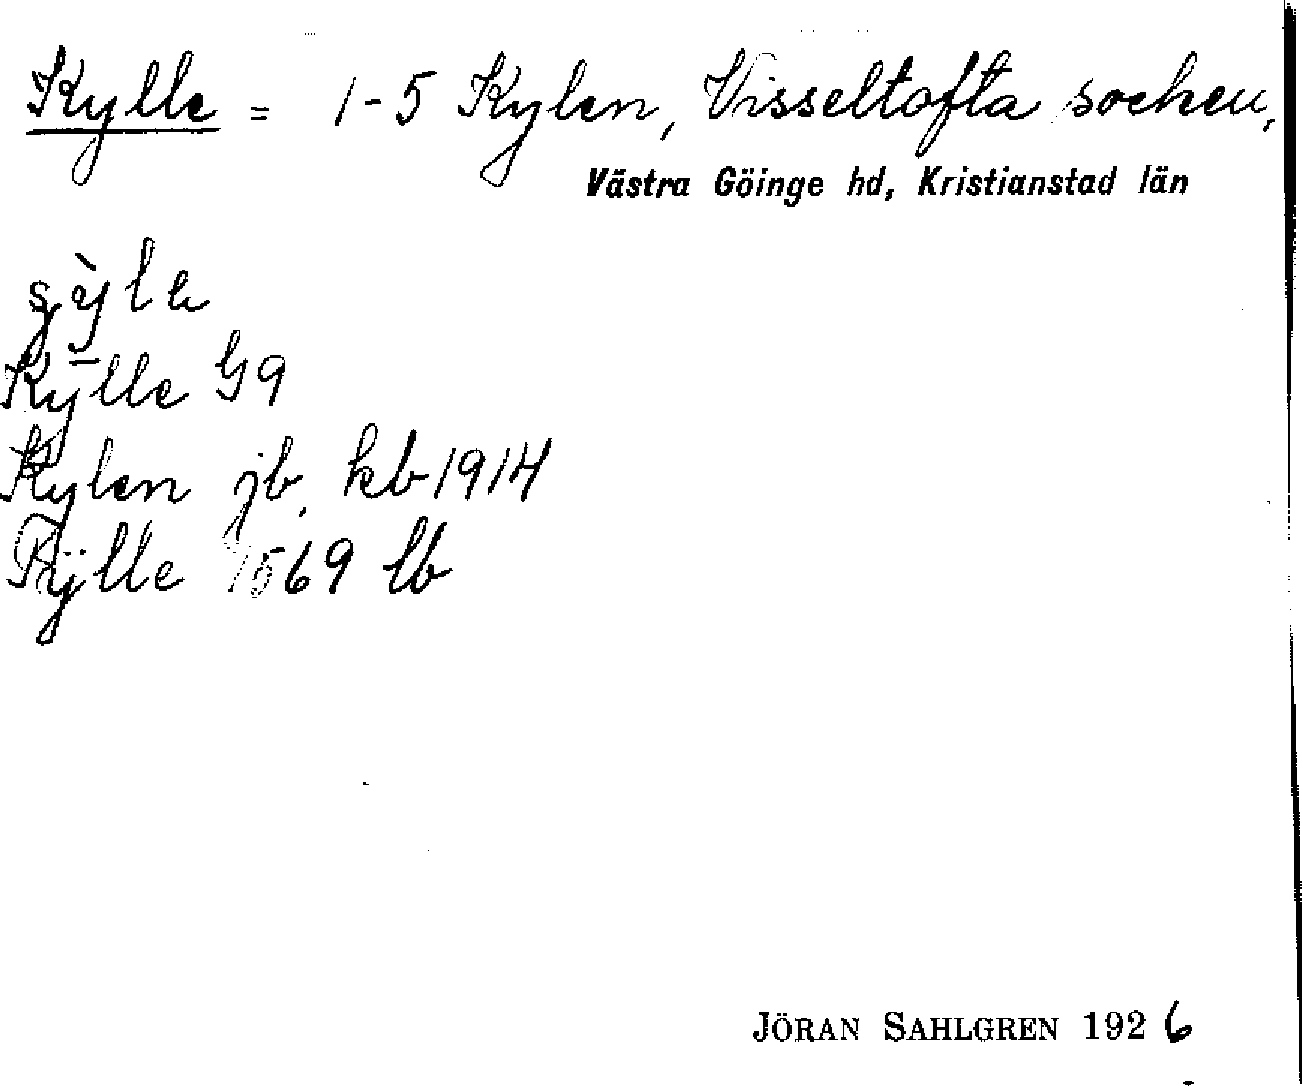 Kylle = 1-5 Kylen, Visseltofta socken,
Västra Göinge hd, Kristianstad län
Kylle G9
Kylen jb, kb 1914
Kÿlle 1569 lb
JÖRAN SAHLGREN 1926